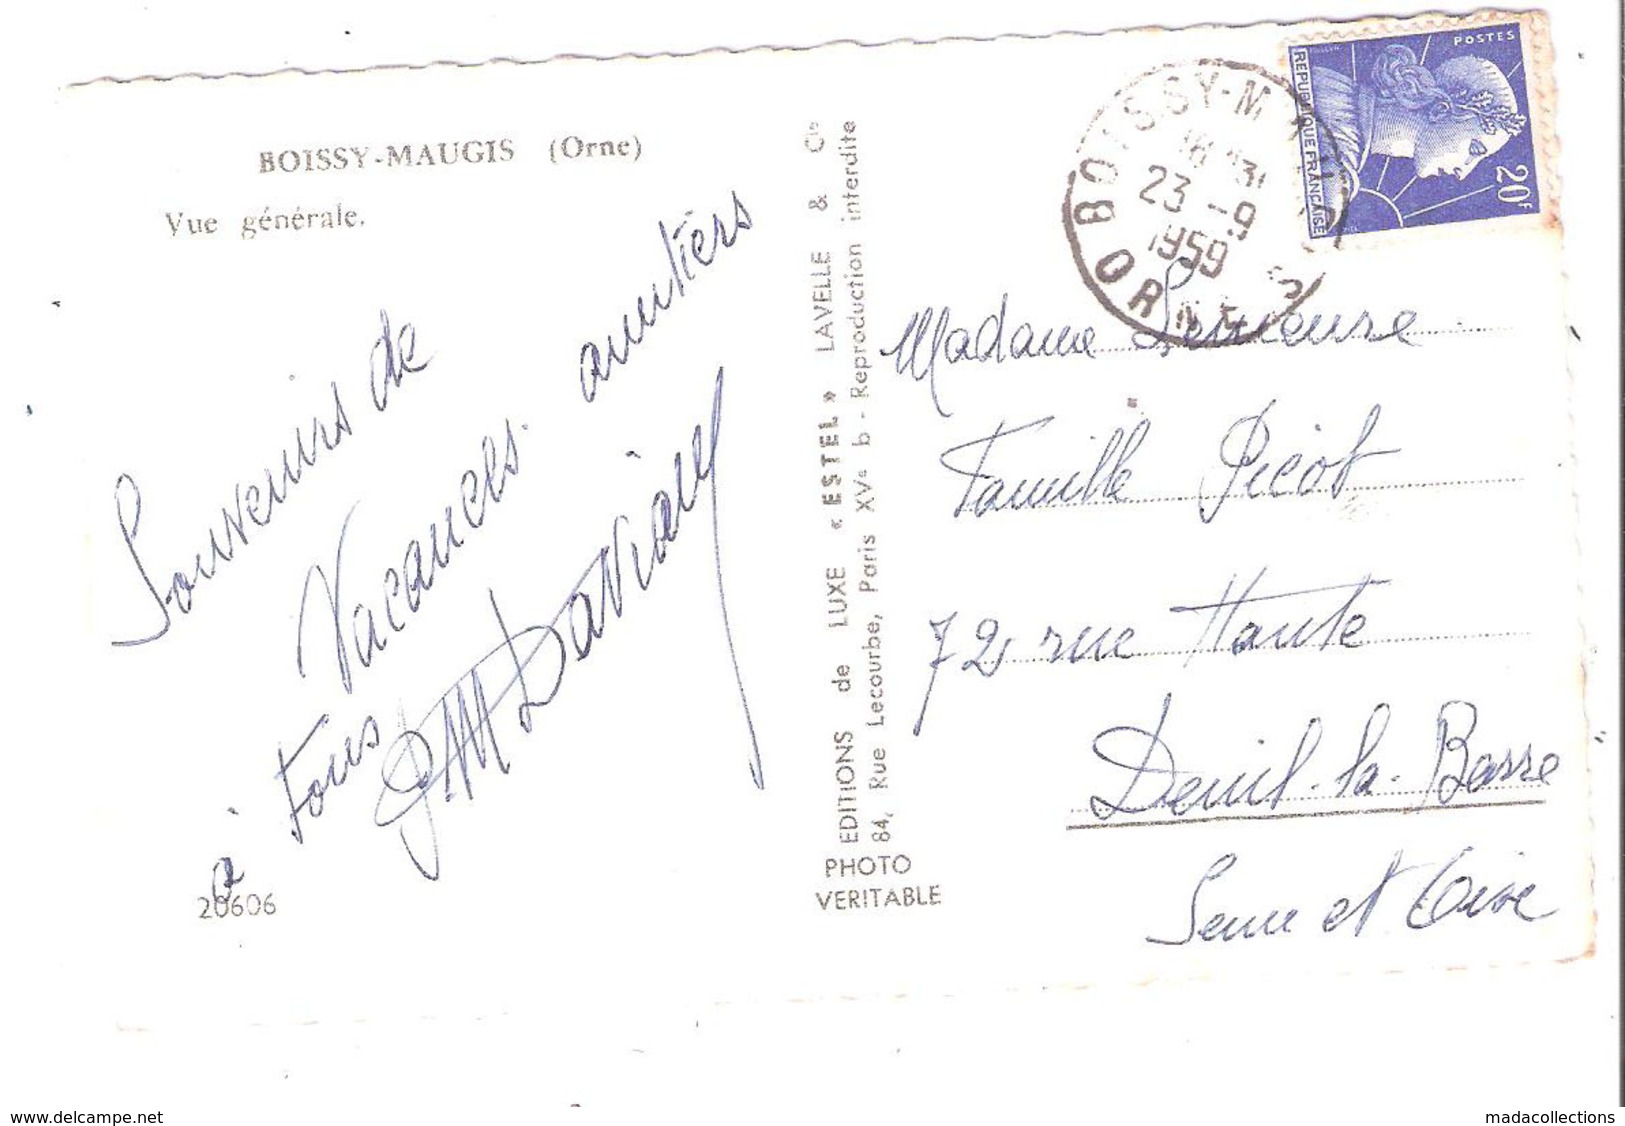 BOISSY-MAUGIS (Orne)
Vue générale.
Souvenirs de
Vacances. amitiés
à tous
20606
EDITIONS de LUXE « ESTEL » LAVELLE & Cie
84, Rue Lecourbe, Paris XVe b - Reproduction interdite
PHOTO
VERITABLE
BOISSY-M
18 H 31
23 -9
1959
ORNE
POSTES
REPUBLIQUE FRANÇAISE
20F
Madame
Famille Picot
72, rue Haute
Deuil-la-Barre
Seine et Oise
www.delcampe.net
madacollections